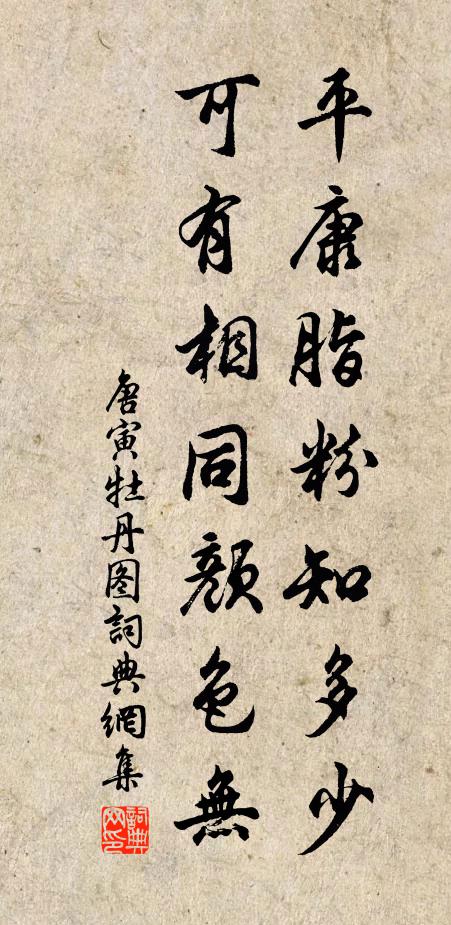 平康脂粉知多少
可有相同顏色無
唐寅牡丹图詞典網集
詞典网印